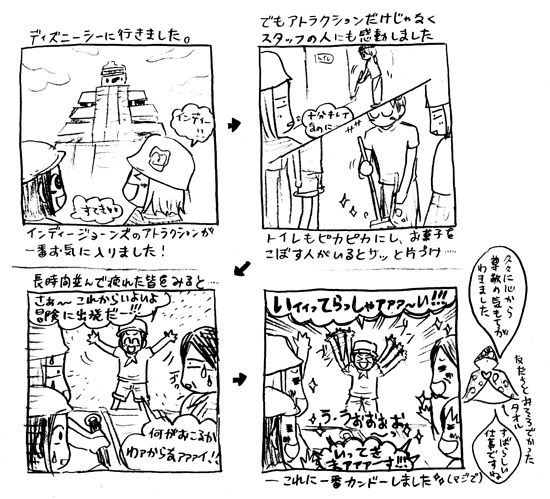 ディズニーシーに行きました。
インディー!!
すてきね
インディージョーンズのアトラクションが
一番お気に入りました!
でもアトラクションだけじゃなく
スタッフの人にも感動しました
トイレ
十分キレイ
なのに…
トイレもピカピカにし、お菓子を
こぼす人がいるとサッと片づけ……
長時間並んで疲れた皆をみると…
さぁ〜これからいよいよ
冒険に出発だー!!!
何がおこるか
わァからなァァァイ!!
いィィってらっしゃァァァ〜い!!!
う・うおおおお
いってき
まァァァーす!!!
これに一番カンドーしました(マジで)
久々に心から
尊敬の気もちが
わきました
友だちとおそろでかった
タオル
すばらしい
仕事ですね